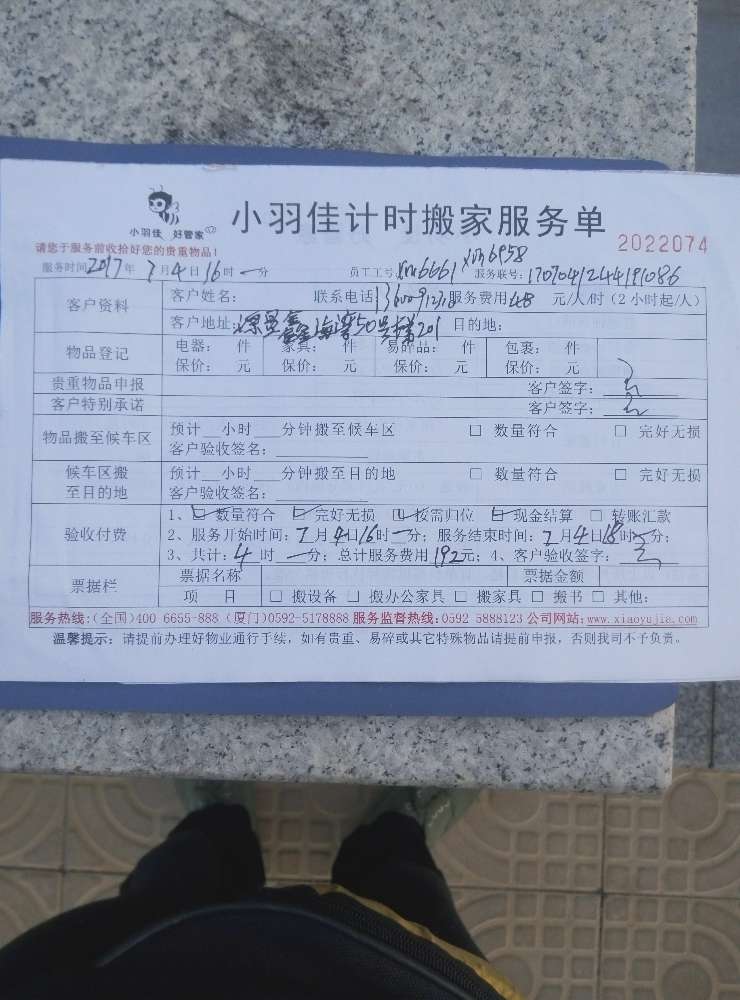 小羽佳 好管家
小羽佳计时搬家服务单
2022074
请您于服务前收拾好您的贵重物品!
xm6958
服务时间2017年7月4日16时一分 员工工号xm6661 服务联号:1707041244191086
客户资料 客户姓名: 联系电话:13600912318 服务费用48元/人/时(2小时起/人)
客户地址: 鑫海湾50号楼201 目的地:
物品登记 电器: 件 家具: 件 易碎品: 件 包裹: 件
保价: 元 保价: 元 保价: 元 保价: 元
贵重物品申报 客户签字:
客户特别承诺 客户签字:
物品搬至候车区 预计__小时__分钟搬至候车区 □ 数量符合 □ 完好无损
客户验收签名:
候车区搬至目的地 预计__小时__分钟搬至目的地 □ 数量符合 □ 完好无损
客户验收签名:
验收付费 1、☑ 数量符合 ☑ 完好无损 ☑ 按需归位 ☑ 现金结算 □ 转账汇款
2、服务开始时间:7月4日16时一分; 服务结束时间:7月4日18时分;
3、共计:4时一分; 总计服务费用192元; 4、客户验收签字:
票据栏 票据名称 票据金额
项 目 □ 搬设备 □ 搬办公家具 □ 搬家具 □ 搬书 □ 其他:
服务热线:(全国)400 6655-888 (厦门)0592-5178888 服务监督热线:0592 5888123 公司网站:www.xiaoyujia.com
温馨提示: 请提前办理好物业通行手续,如有贵重、易碎或其它特殊物品请提前申报,否则我司不予负责。